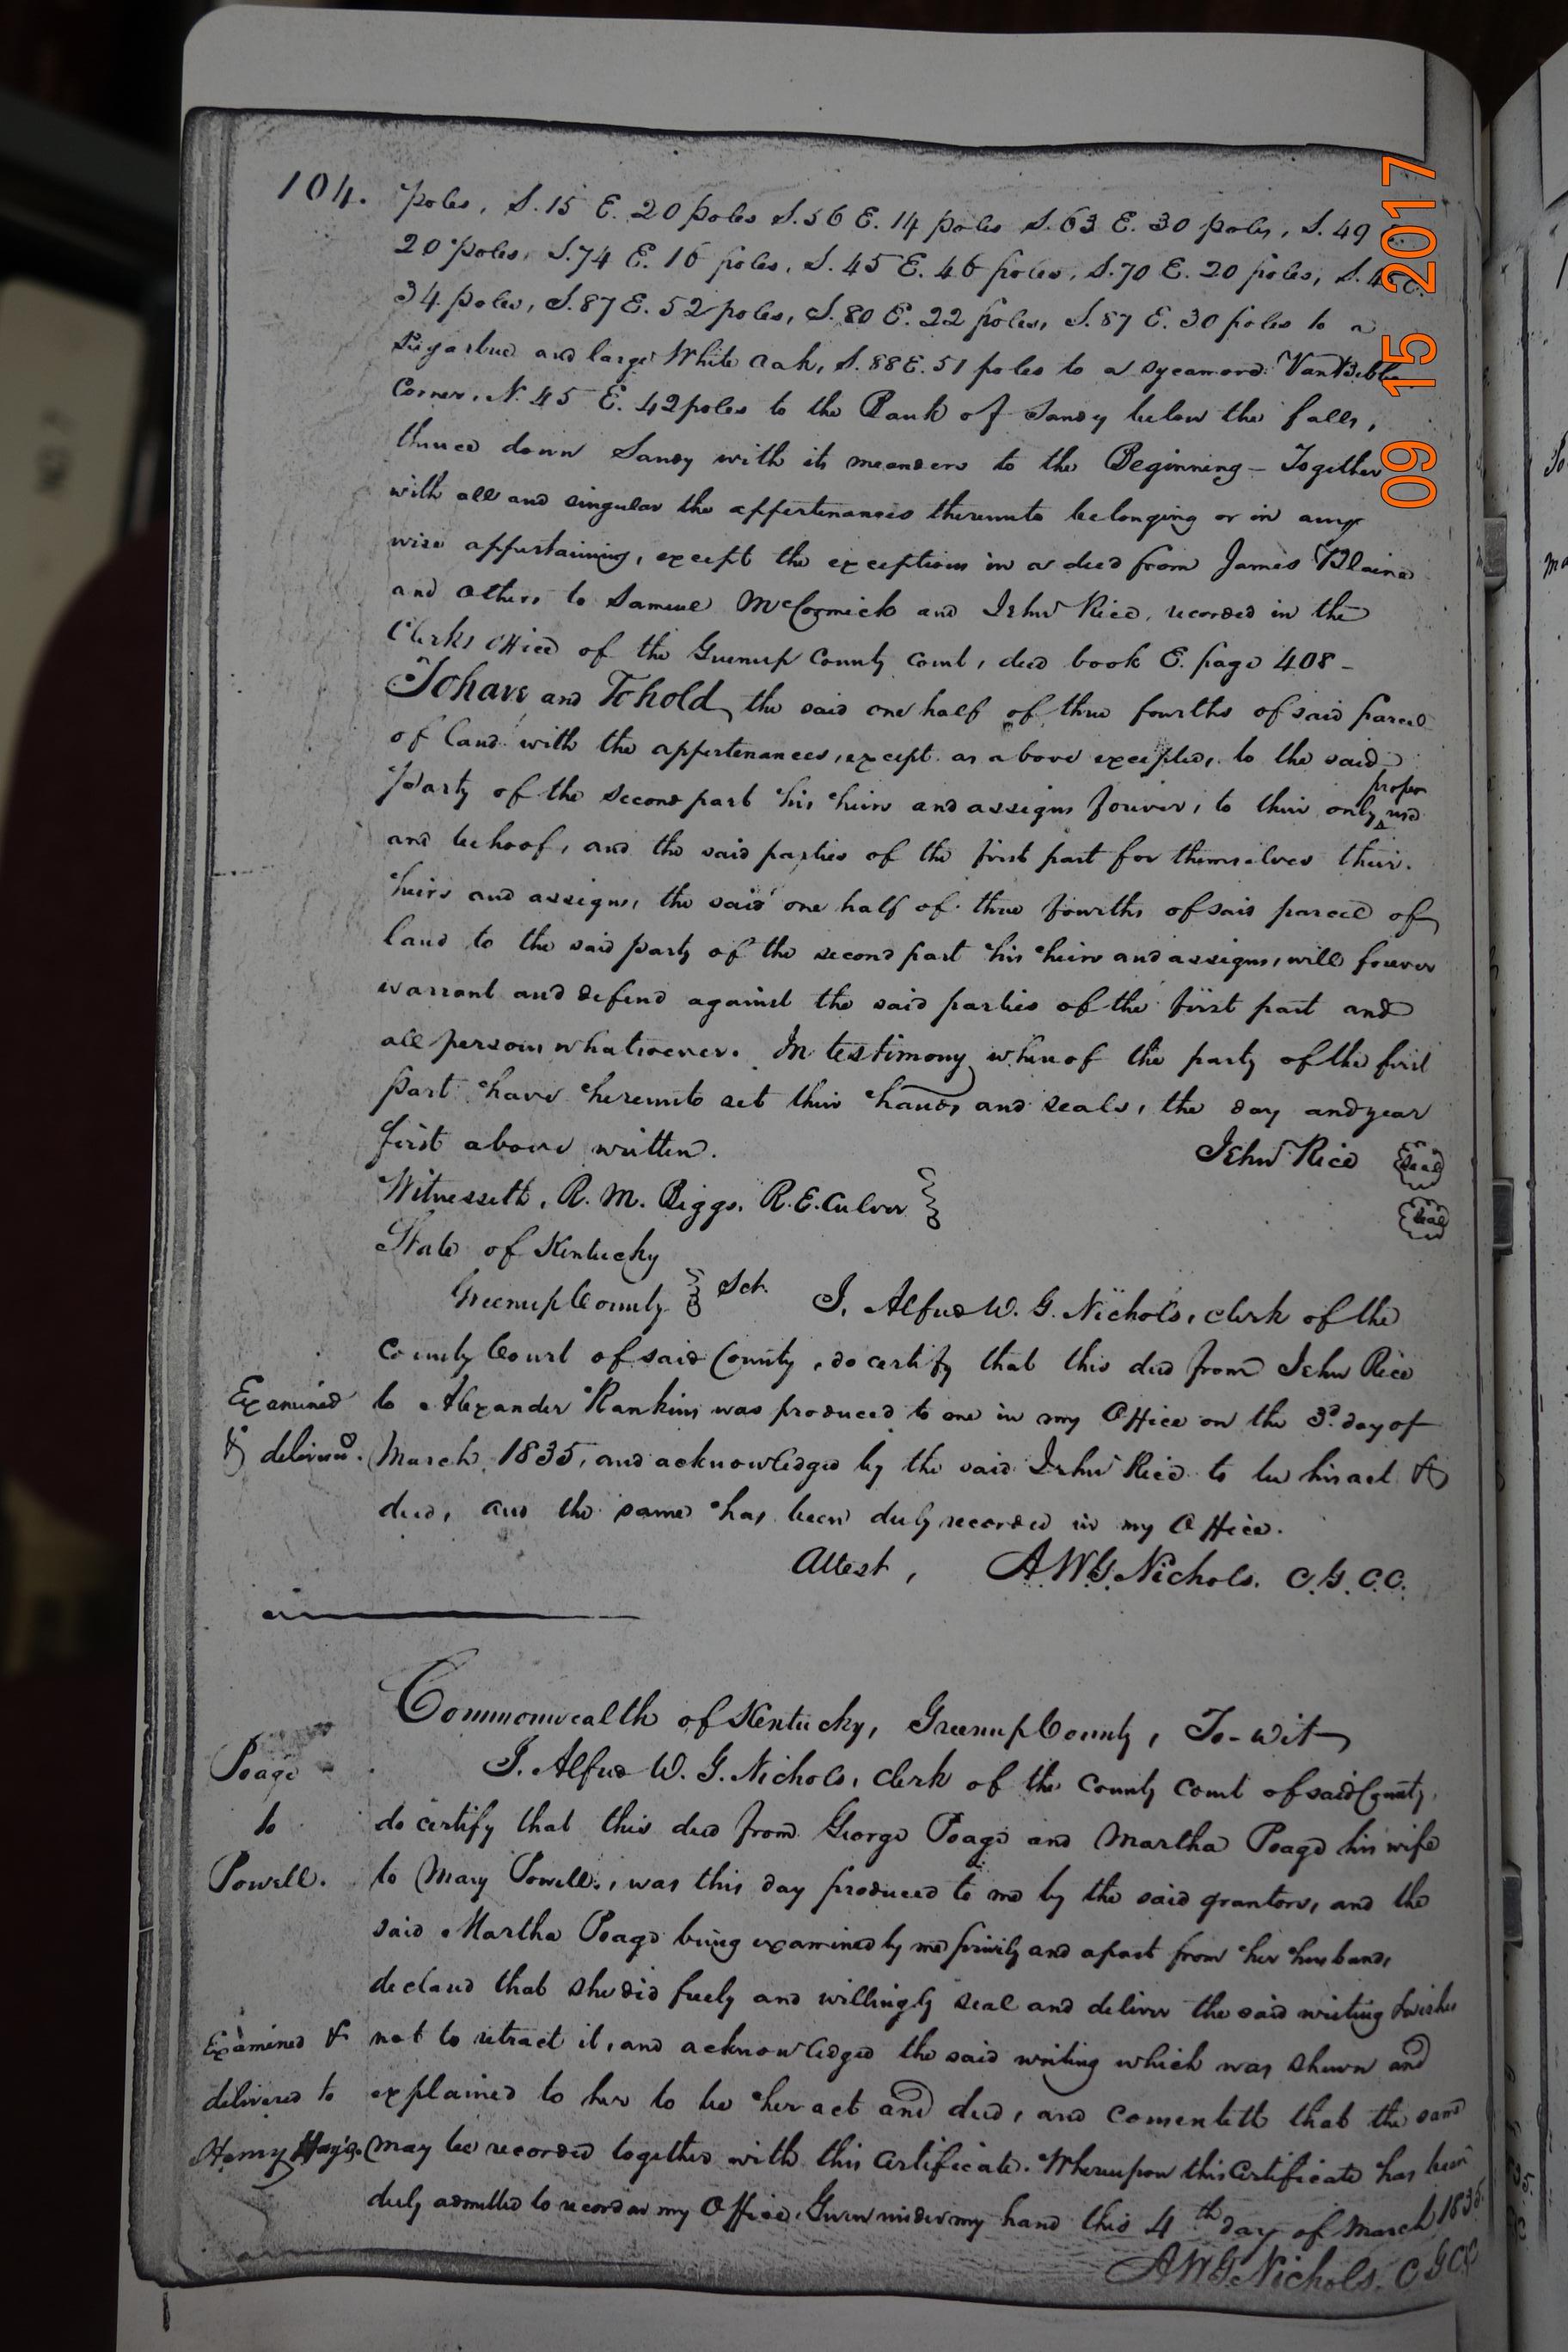 104.
poles, S. 15 E. 20 poles S. 56 E. 14 poles S. 63 E. 30 poles, S. 49
20 poles, S. 74 E. 16 poles, S. 45 E. 46 poles, S. 70 E. 20 poles, S.
34 poles, S. 87 E. 52 poles, S. 80 E. 22 poles, S. 87 E. 30 poles to a
Sugartree and large White Oak, S. 88 E. 51 poles to a Sycamore VanBibber
Corner, N. 45 E. 42 poles to the Bank of Sandy below the falls,
thence down Sandy with its meanders to the Beginning - Together
with all and singular the appertenances thereunto belonging or in any
wise appertaining, except the exceptions in a deed from James Blaine
and others to Samuel McCormick and John Rice, recorded in the
Clerks office of the Greenup County Court, deed book E. page 408 -
To have and To hold, the said one half of three fourths of said parcel
of land with the appertenances, except as above excepted, to the said
party of the second part his heirs and assigns forever, to their only proper use
and behoof, and the said parties of the first part for themselves their
heirs and assigns, the said one half of three fourths of said parcel of
land to the said party of the second part his heirs and assigns, will forever
warrant and defend against the said parties of the first part and
all persons whatsoever. In testimony whereof the party of the first
part have hereunto set their hands and seals, the day and year
first above written. John Rice Seal
Witnesseth, R. M. Biggs, R. E. Culver Seal
State of Kentucky
Greenup County Sct. I, Alfred W. G. Nichols, clerk of the
County Court of said County, do certify that this deed from John Rice
Examined to Alexander Rankins was produced to me in my Office on the 3d. day of
& delivered. March 1835, and acknowledged by the said John Rice to be his act &
deed, and the same has been duly recorded in my Office.
Attest, A. W. G. Nichols. C. G. C. C.
Commonwealth of Kentucky, Greenup County, To-wit
Poage I, Alfred W. G. Nichols, clerk of the County Court of said County,
to do certify that this deed from George Poage and Martha Poage his wife
Powell. to Mary Powell, was this day produced to me by the said grantors, and the
said Martha Poage being examined by me privily and apart from her husband,
declared that she did freely and willingly seal and deliver the said writing & wishes
Examined & not to retract it, and acknowledged the said writing which was shewn and
delivered to explained to her to be her act and deed, and consenteth that the same
Henry may be recorded together with this Certificate. Whereupon this Certificate has been
duly admitted to record in my Office. Given under my hand this 4th day of March 1835.
A W G Nichols. C G C C
09 15 2017